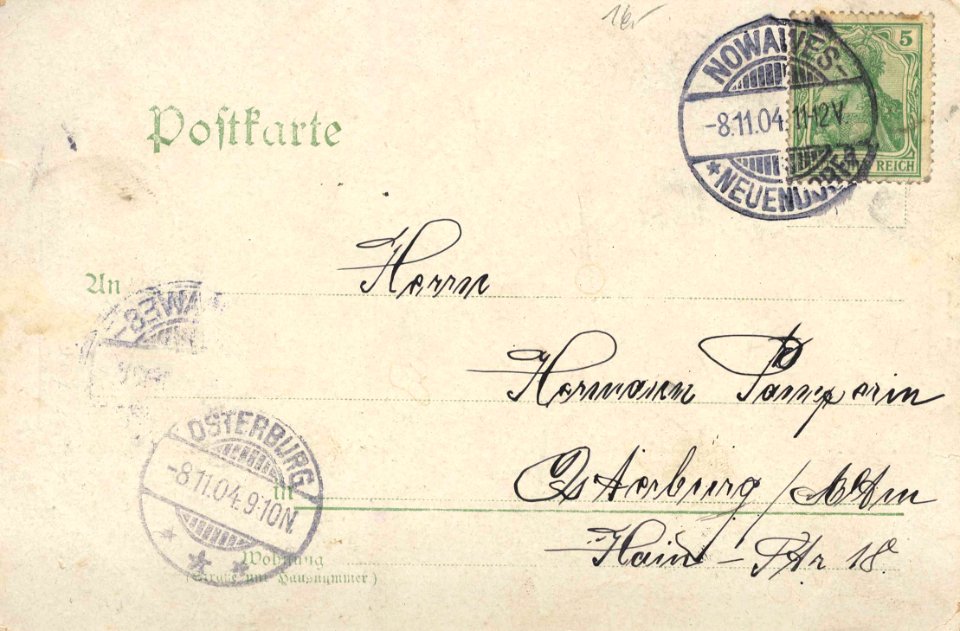 NOWAWES-
-8.11.04.11-12V.
*NEUENDORF*
5
REICH
Postkarte
An
Herrn
Hermann Pamperin
Osterburg /
Hain-Str 18.
OSTERBURG
-8.11.04.9-10N.
in
Wohnung
(Straße und Hausnummer)